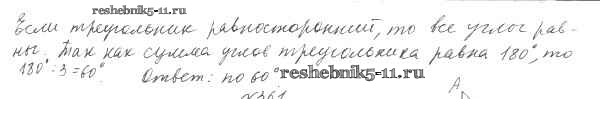 reshebnik5-11.ru
Если треугольник равносторонний, то все углы рав-
ны. Так как сумма углов треугольника равна 180°, то
180° : 3 = 60°. Ответ: по 60° reshebnik5-11.ru
№361 A